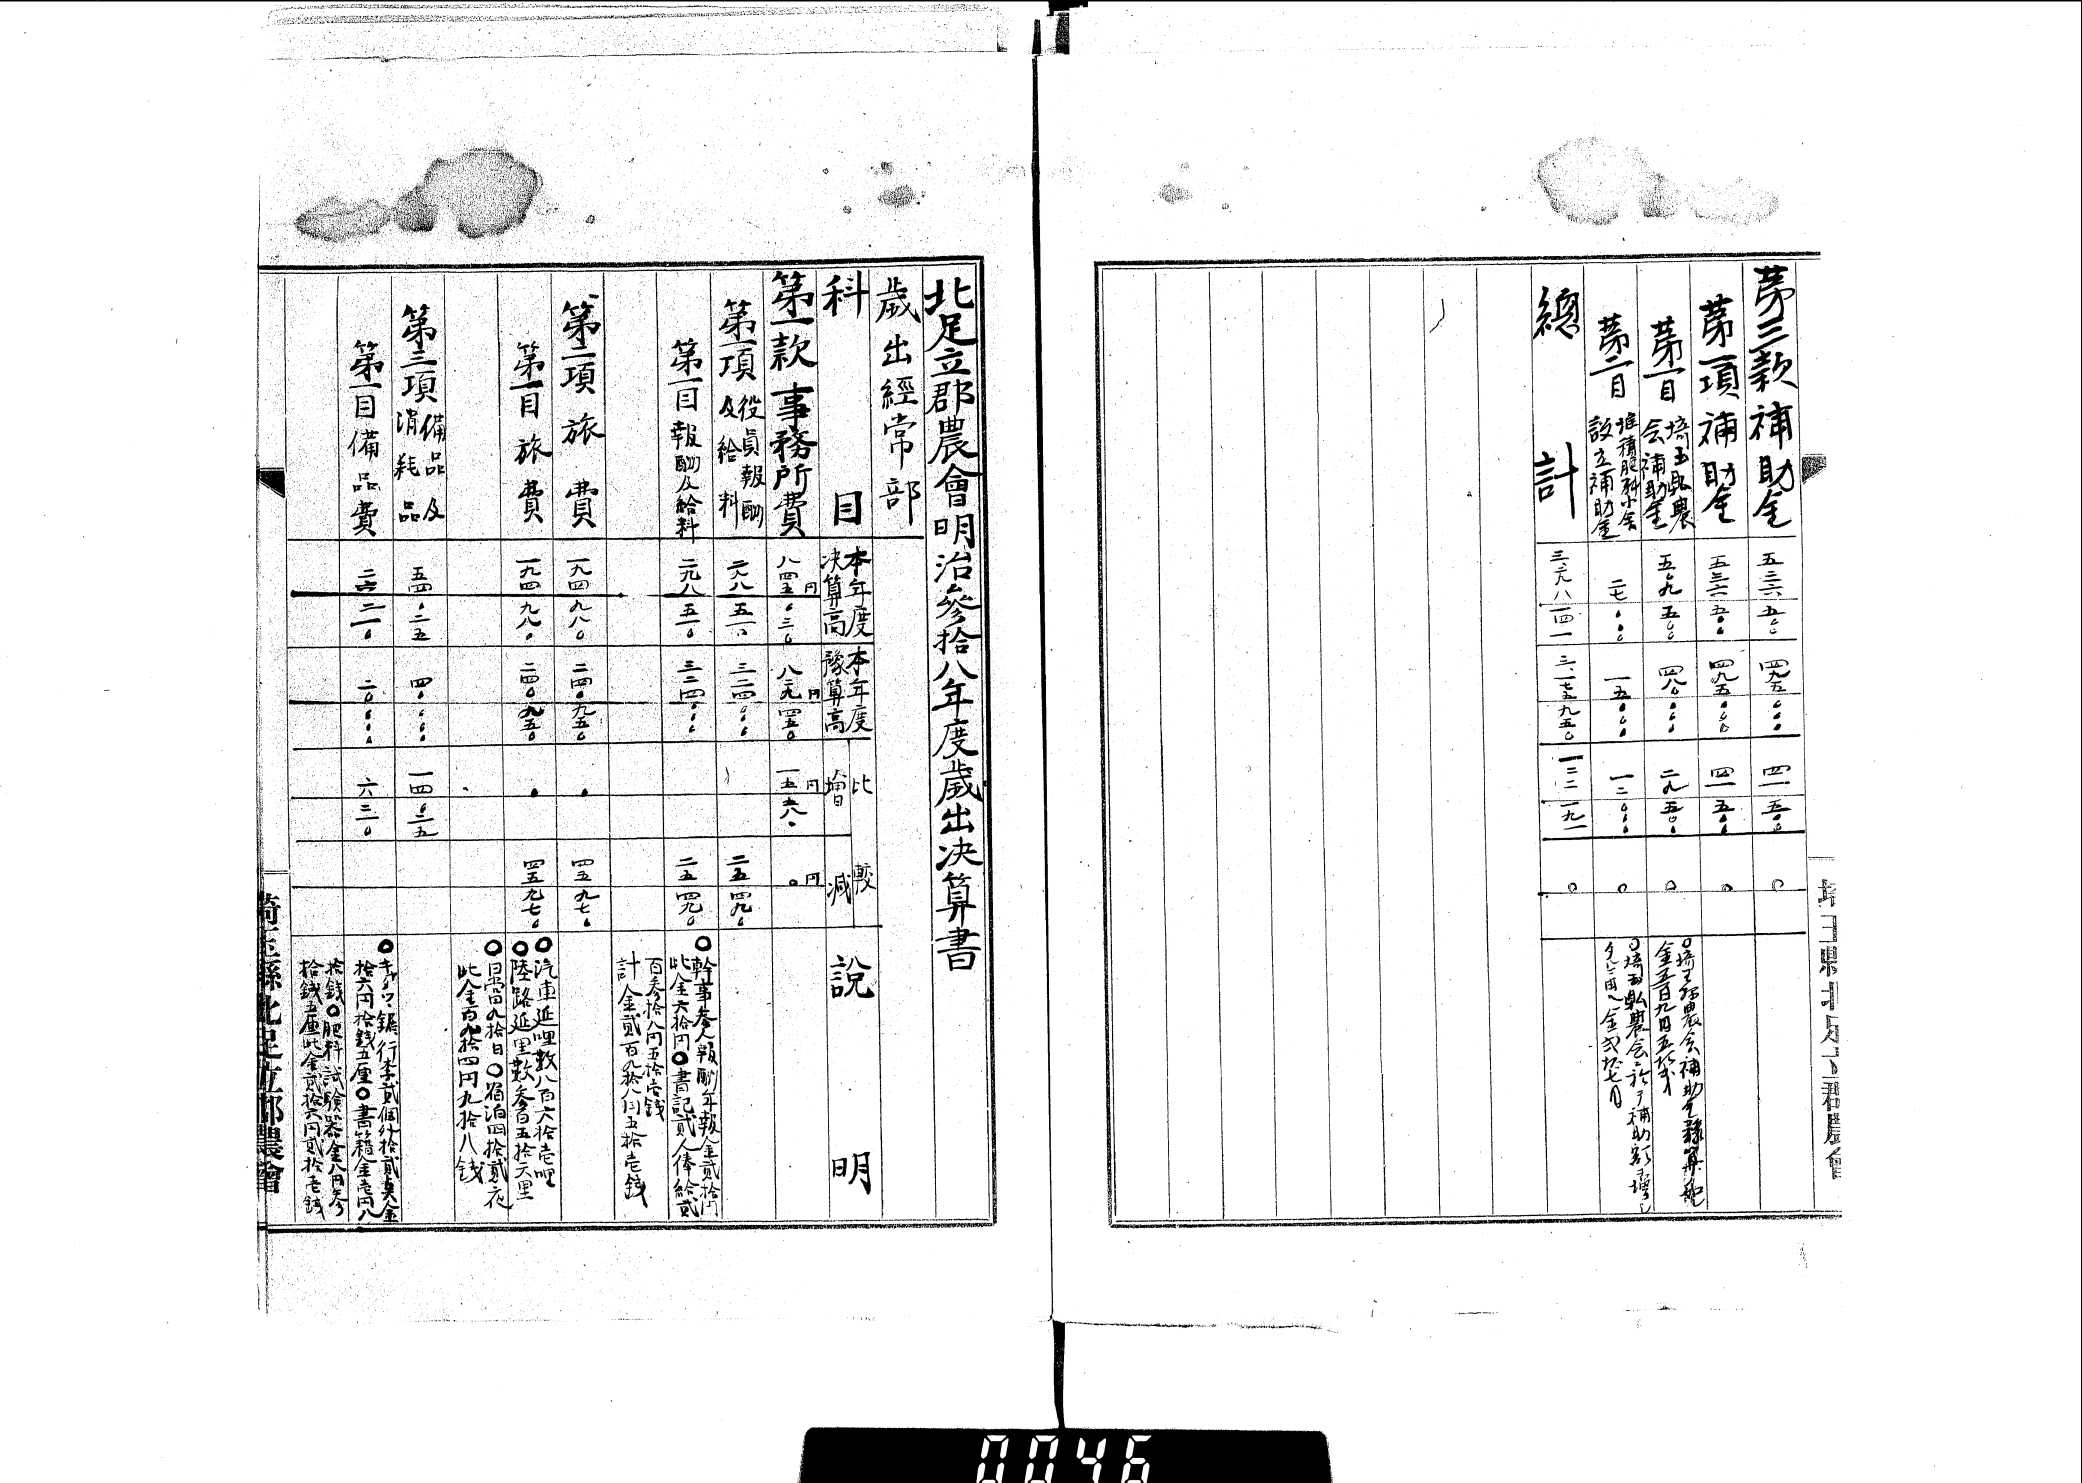 第三款補助金
五三六五〇〇
四九五〇〇〇
四一五〇〇
〇
第一項補助金
五三六五〇〇
四九五〇〇〇
四一五〇〇
〇
第一目 埼玉縣農会補助金
五〇九五〇〇
四八〇〇〇〇
二九五〇〇
〇
〇埼玉縣農会補助金豫算
金五百九円五拾戋
第二目 堆積肥料小舎設立補助金
二七〇〇〇
一五〇〇〇
一二〇〇〇
〇
〇埼玉縣農会ニ於テ補助額ヲ増シ
總計
〇
埼玉縣北足立郡農會
北足立郡農會明治參拾八年度歳出決算書
歳出經常部
科目
本年度決算高
本年度豫算高
比較
増
減
説明
第一款事務所費
八四五〇三〇
八二九四五〇
一五五八〇
〇
第一項 役員報酬及給料
二九八五一〇
三二四〇〇〇
二五四九〇
第一目報酬及給料
二九八五一〇
三二四〇〇〇
二五四九〇
〇幹事参人報酬年報金貳拾円
此金六拾円〇書記貳人俸給貳
百参拾八円五拾壱銭
計金貳百九拾八円五拾壱銭
第二項旅費
一九四九八〇
二四〇九五〇
四五九七〇
第一目旅費
一九四九八〇
二四〇九五〇
四五九七〇
〇汽車延哩数八百六拾壱哩
〇陸路延里数参百五拾六里
〇日当百九拾日〇宿泊四拾貳夜
此金百九拾四円九拾八銭
第三項 備品及消耗品
五四〇三五
四〇〇〇〇
一四〇三五
第一目備品費
二六二一〇
二〇〇〇〇
六二一〇
行李貳個外拾貳点金
拾六円拾銭五厘〇書籍金壱円八
拾銭〇肥料試験器金八円参
拾銭五厘此金貳拾六円貳拾壱銭
埼玉縣北足立郡農會
0046